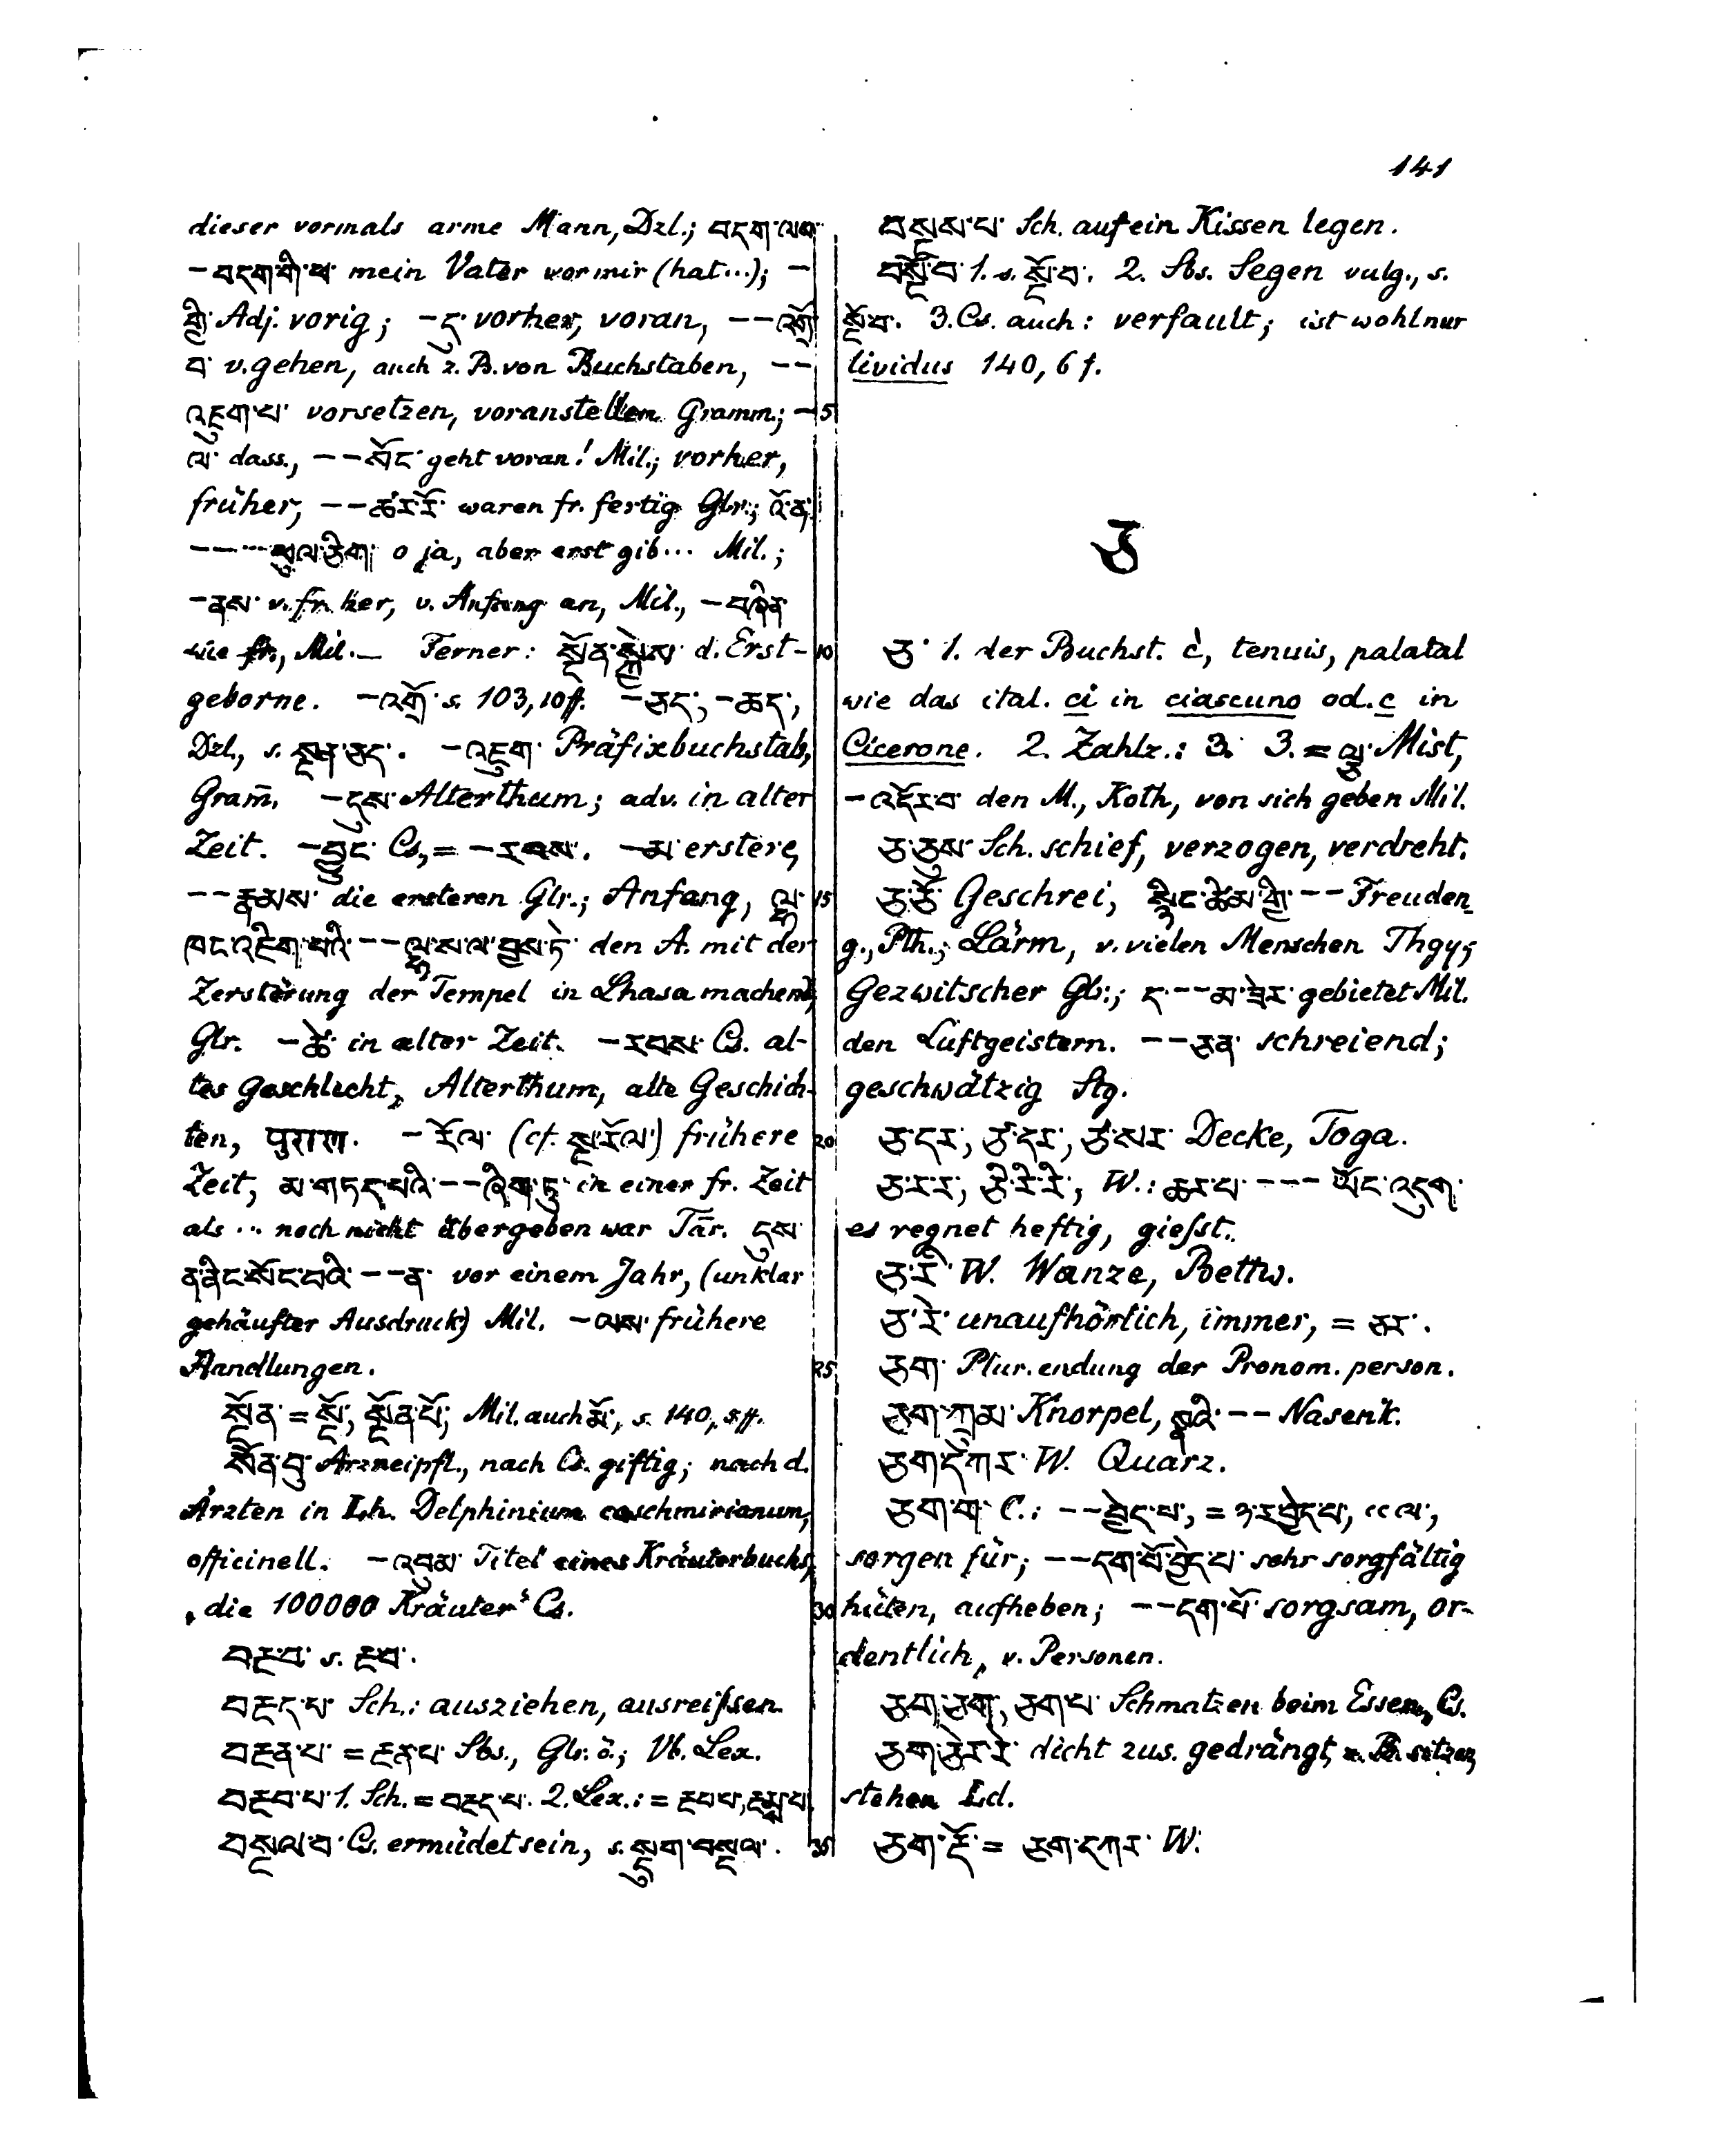 141
dieser vormals arme Mann, Dzl.; བདག་ལས་
–བདག་གི་ཕ་ mein Vater vor mir (hat...); –
གྱི་ Adj. vorig; –དུ་ vorher, voran, ––འགྲོ་
བ་ v. gehen, auch z. B. von Buchstaben, ––
འཇུག་པ་ vorsetzen, voranstellen Gramm.; –
ལ་ dass., ––སོང་ geht voran! Mil.; vorher,
früher, ––ཚར་རོ་ waren fr. fertig Glr.; འོ་ན་
––...ཕུལ་ཅིག་ o ja, aber erst gib... Mil.;
–ནས་ v. fr. her, v. Anfang an, Mil., –བཞིན་
wie fr., Mil. – Ferner: སྔོན་སྐྱེས་ d. Erst-
geborne. –འགྲོ་ s. 103,10ff. –ཆད་, –ཆད་,
Dzl., s. སྔན་ཆད་. –འཇུག་ Präfixbuchstab,
Gram̄. –དུས་ Alterthum; adv. in alter
Zeit. –བྱུང་ Cs., = –རབས་. –མ་ erstere,
––རྣམས་ die ersteren Glr.; Anfang, ལྷ་
ཁང་འཇིག་པའི་––ལྷ་ས་ལ་བྱས་ཏེ་ den A. mit der
Zerstörung der Tempel in Lhasa machend,
Glr. –ཚེ་ in alter Zeit. –རབས་ Cs. al-
tes Geschlecht, Alterthum, alte Geschich-
ten, पुराण. –རོལ་ (cf. སྔ་རོལ་) frühere
Zeit, མ་གཏད་པའི་––ཞིག་ཏུ་ in einer fr. Zeit
als ... noch nicht übergeben war Tār. དུས་
ན་ནིང་སོང་བའི་––ན་ vor einem Jahr, (unklar
gehäufter Ausdruck) Mil. –ལས་ frühere
Handlungen.
སྔོན་ = སྔོ་, སྔོན་པོ་, Mil. auch མོ་, s. 140, 5ff.
སྔོན་བུ་ Arzneipfl., nach Cs. giftig; nach d.
Ärzten in Lh. Delphinium caschmirianum,
officinell. –འབུམ་ Titel eines Kräuterbuchs,
„die 100000 Kräuter“ Cs.
བརྔ་བ་ s. རྔ་བ་.
བརྔད་པ་ Sch.: ausziehen, ausreißen.
བརྔན་པ་ = རྔན་པ་ Sbs., Glr. ö.; Vb. Lex.
བརྔབ་པ་ 1. Sch. = བརྔད་པ་. 2. Lex.: = རྔབ་པ་,
བསྔལ་བ་ Cs. ermüdet sein, s. སྡུག་བསྔལ་.
བསྔས་པ་ Sch. auf ein Kissen legen.
བསྔོ་བ་ 1. s. སྔོ་བ་. 2. Sbs. Segen vulg., s.
སྔོ་བ་. 3. Cs. auch: verfault; ist wohl nur
lividus 140, 6 f.
ཅ
ཅ་ 1. der Buchst. c̀, tenuis, palatal
wie das ital. ci in ciascuno od. c in
Cicerone. 2. Zahlz.: 3. 3. = ལྕི་ Mist,
–འདོར་བ་ den M., Koth, von sich geben Mil.
ཅ་ཅུས་ Sch. schief, verzogen, verdreht.
ཅ་ཅོ་ Geschrei, སྙིང་ཚིམ་གྱི་––Freuden-
g., Pth.; Lärm, v. vielen Menschen Thgy;
Gezwitscher Glr.; ད་––མ་ཟེར་ gebietet Mil.
den Luftgeistern. ––ཅན་ schreiend;
geschwätzig Stg.
ཅ་དར་, ཙ་དར་, ཙ་སར་ Decke, Toga.
ཅ་ར་ར་, ཅི་རི་རི་, W.: ཆར་པ་––– ཡོང་འདུག་
es regnet heftig, gießt.
ཅ་རི་ W. Wanze, Bettw.
ཅ་རེ་ unaufhörlich, immer, = ཅར་.
ཅག་ Plur.endung der Pronom. person.
ཅག་ཀྲུམ་ Knorpel, སྣའི་–– Nasenk.
ཅག་དཀར་ W. Quarz.
ཅག་ག་ C.: ––བྱེད་པ་, = ཉར་བྱེད་པ་, cc ལ་,
sorgen für; ––དག་པོ་བྱེད་པ་ sehr sorgfältig
hüten, aufheben; ––དག་པོ་ sorgsam, or-
dentlich, v. Personen.
ཅག་ཅག་, ཅག་པ་ Schmatzen beim Essen, Cs.
ཅག་ཅེར་རེ་ dicht zus. gedrängt, z. B. sitzen,
stehen Ld.
ཅག་རྡོ་ = ཅག་དཀར་ W.
5
10
15
20
25
30
35